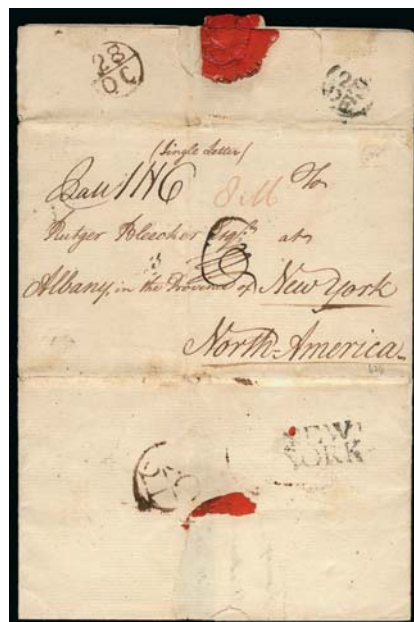 28
OC
(Single Letter)
8M To
Rutger Bleecker Esqr. at
Albany, in the Province of New York
North-America
NEW
YORK